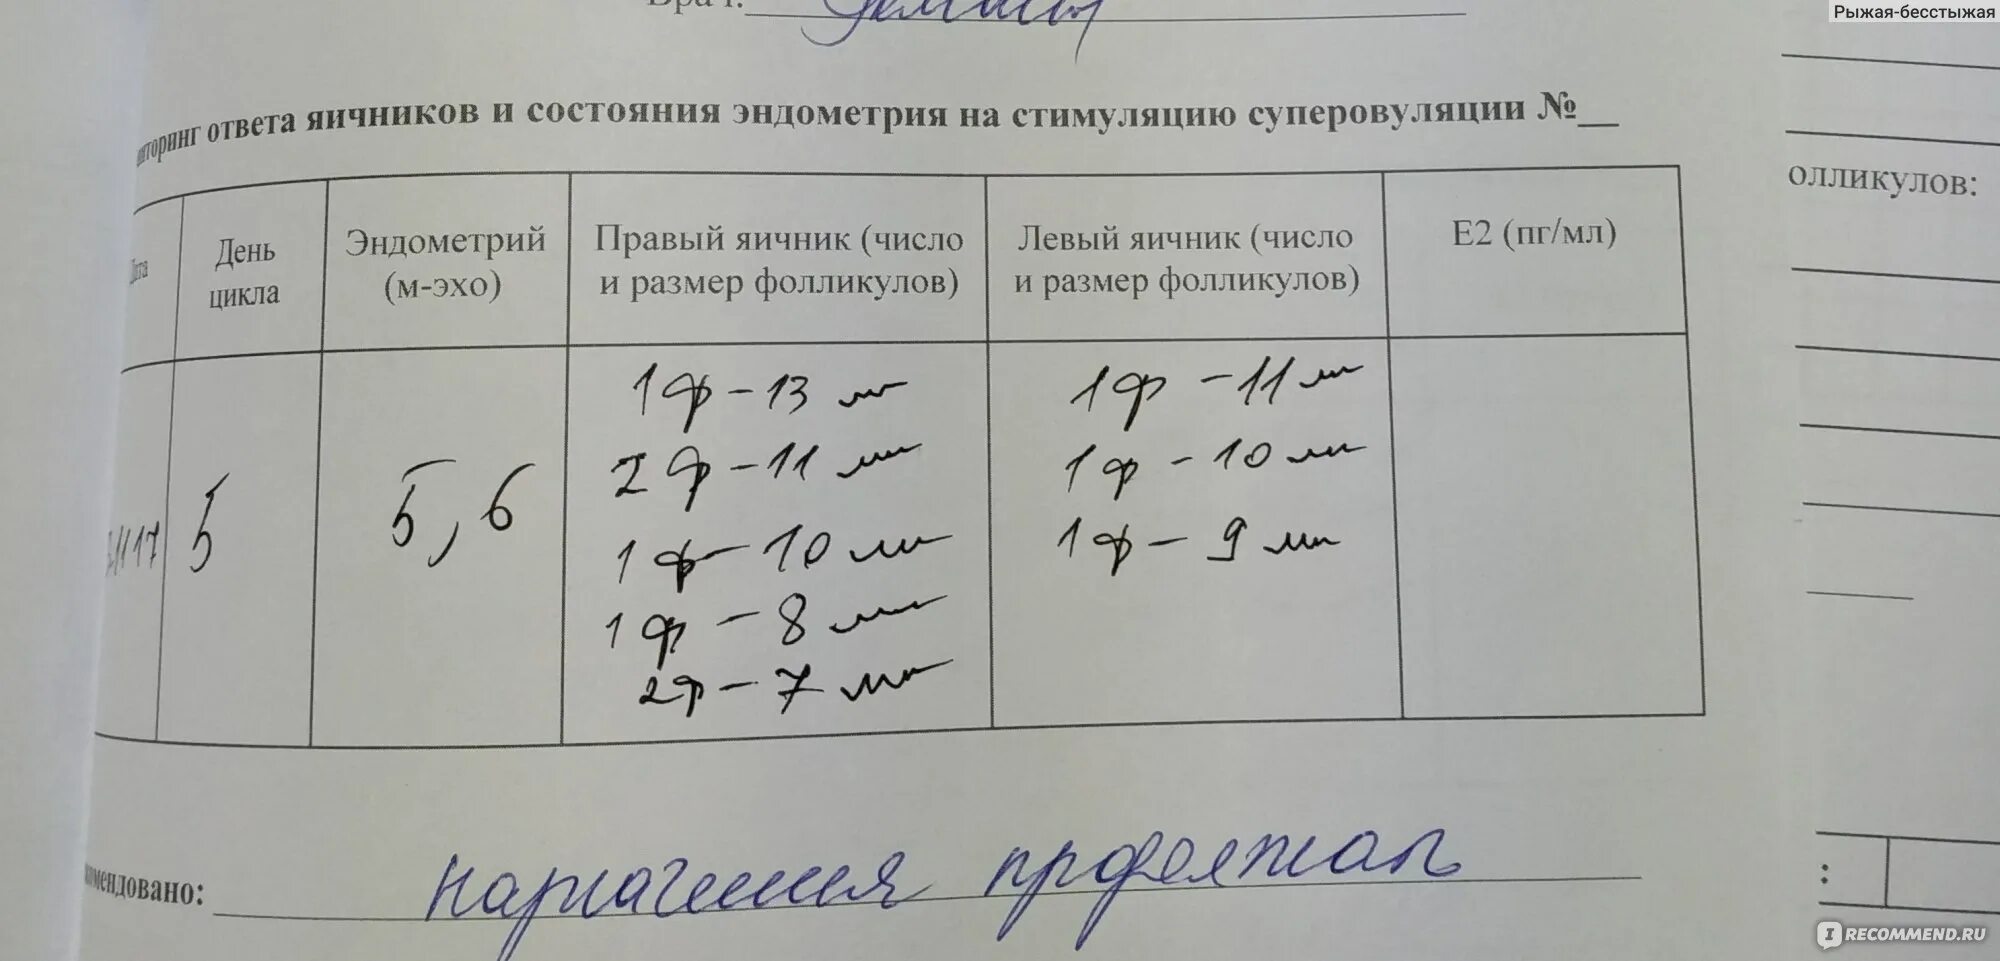 Рыжая-бесстыжая
ответа яичников и состояния эндометрия на стимуляцию суперовуляции №__
олликулов:
День цикла
Эндометрий (м-эхо)
Правый яичник (число и размер фолликулов)
Левый яичник (число и размер фолликулов)
Е2 (пг/мл)
5
5,6
1ф - 13 мм
2ф - 11 мм
1ф - 10 мм
1ф - 8 мм
2ф - 7 мм
1ф - 11 мм
1ф - 10 мм
1ф - 9 мм
мендовано: назначения продолжать
:
IRECOMMEND.RU